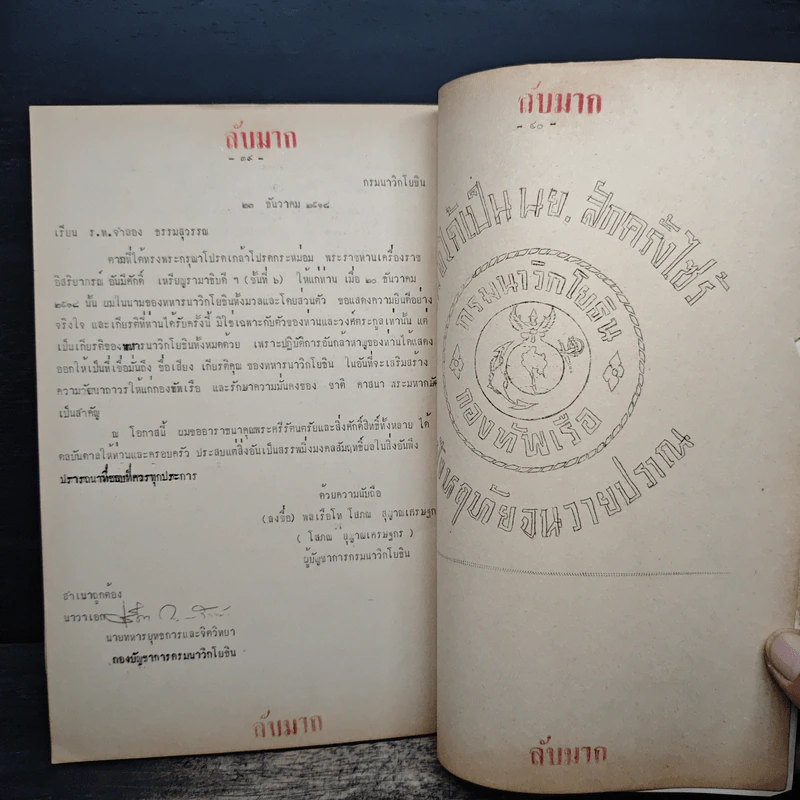 ลับมาก
- ๓๙ -
กรมนาวิกโยธิน
๒๓ ธันวาคม ๒๕๑๘
เรียน ร.ท.จำลอง ธรรมสุวรรณ
ตามที่ได้ทรงพระกรุณาโปรดเกล้าโปรดกระหม่อม พระราชทานเครื่องราช
อิสริยาภรณ์ อันมีศักดิ์ เหรียญรามาธิบดี ฯ (ชั้นที่ ๖) ให้แก่ท่าน เมื่อ ๒๐ ธันวาคม
๒๕๑๘ นั้น ผมในนามของทหารนาวิกโยธินทั้งมวลและโดยส่วนตัว ขอแสดงความยินดีอย่าง
จริงใจ และเกียรติที่ท่านได้รับครั้งนี้ มิใช่เฉพาะกับตัวของท่านและวงศ์ตระกูลเท่านั้น แต่
เป็นเกียรติของทหารนาวิกโยธินทั้งหมดด้วย เพราะปฏิบัติการอันกล้าหาญของท่านได้แสดง
ออกให้เป็นที่เชื่อมั่นถึง ชื่อเสียง เกียรติคุณ ของทหารนาวิกโยธิน ในอันที่จะเสริมสร้าง
ความวัฒนาถาวรให้แก่กองทัพเรือ และรักษาความมั่นคงของ ชาติ ศาสนา พระมหากษั
เป็นสำคัญ
ณ โอกาสนี้ ผมขออาราธนาคุณพระศรีรัตนตรัยและสิ่งศักดิ์สิทธิ์ทั้งหลาย ได้
ดลบันดาลให้ท่านและครอบครัว ประสบแต่สิ่งอันเป็นสรรพมิ่งมงคลสัมฤทธิ์ผลในสิ่งอันพึง
ปรารถนาที่ชอบที่ควรทุกประการ
ด้วยความนับถือ
(ลงชื่อ) พลเรือโท โสภณ สุญาณเศรษฐก
( โสภณ สุญาณเศรษฐกร )
ผู้บัญชาการกรมนาวิกโยธิน
สำเนาถูกต้อง
นาวาเอก
นายทหารยุทธการและจิตวิทยา
กองบัญชาการกรมนาวิกโยธิน
ลับมาก
ลับมาก
- ๔๐ -
ได้เป็น นย. สักครั้งไซร้
กรมนาวิกโยธิน
กองทัพเรือ
หฤทัยจนวายปราณ
ลับมาก